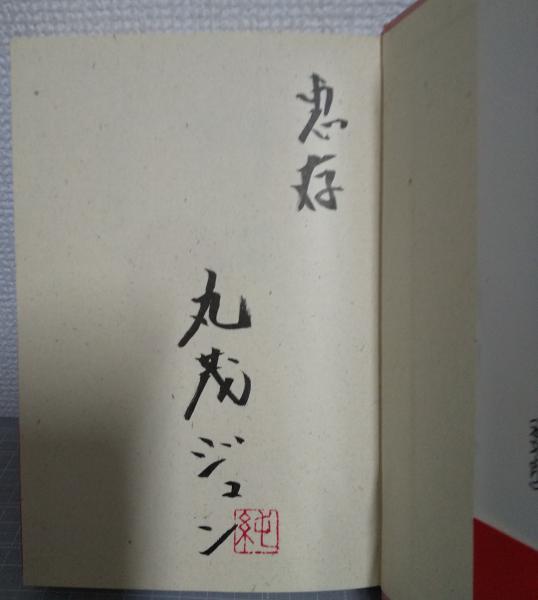 恵存
丸茂ジュン
純